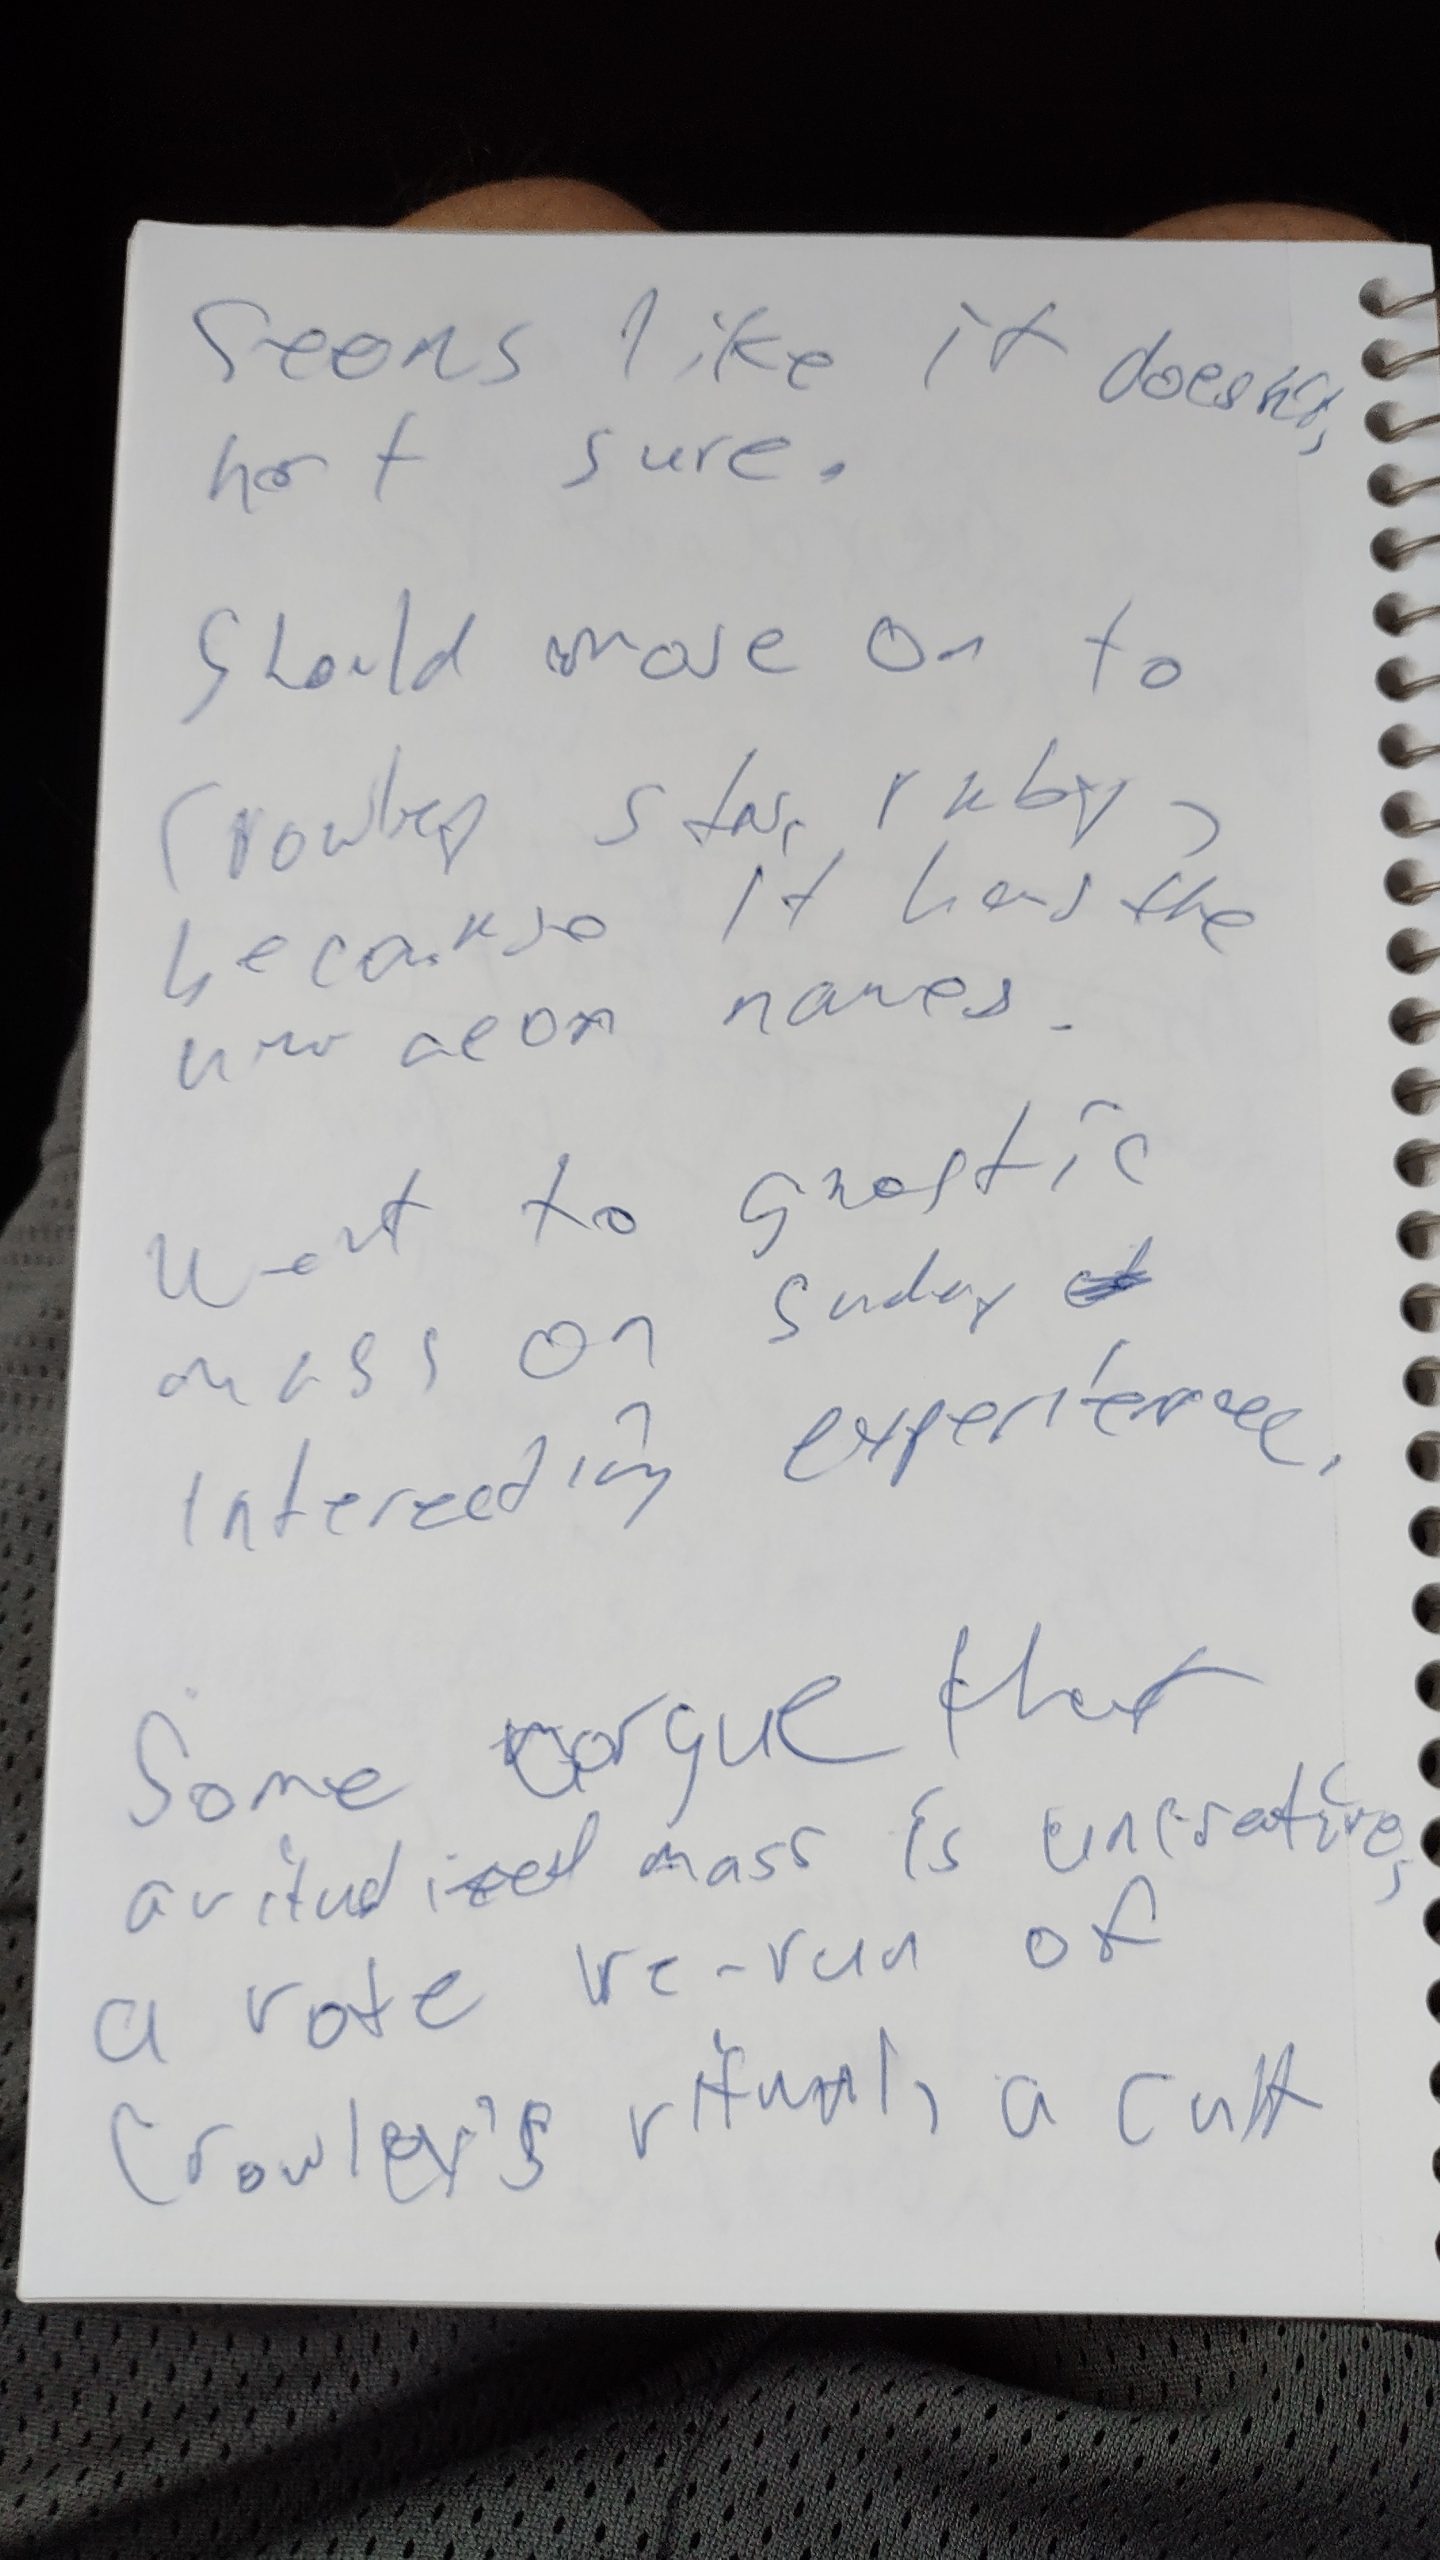 Seems like it doesn't,
not sure.
Should move on to
Crowley star ruby,
because it has the
new aeon names.
Went to gnostic
mass on Sunday
Interesting experience.
Some argue that
a ritualized mass is uncreative,
a rote re-run of
Crowley's ritual, a cult